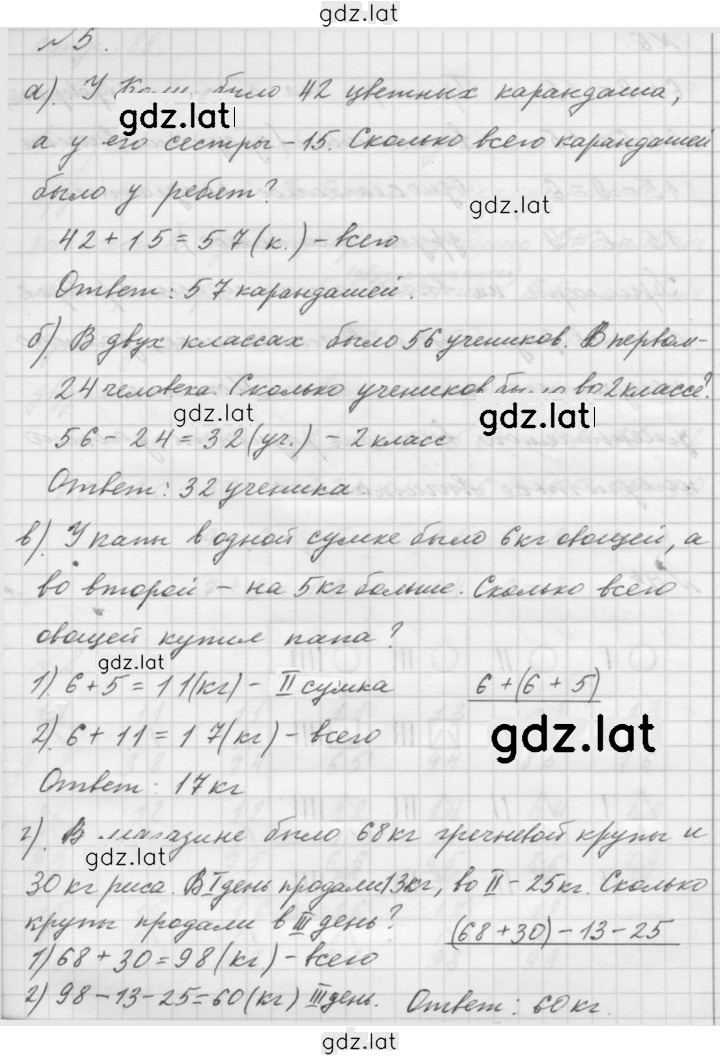 gdz.lat
№ 5.
а). У Коли было 42 цветных карандаша,
gdz.lat
а у его сестры – 15. Сколько всего карандашей
было у ребят?
gdz.lat
42 + 15 = 57 (к.) – всего
Ответ: 57 карандашей.
б). В двух классах было 56 учеников. В первом –
24 человека. Сколько учеников было во 2 классе?
gdz.lat
gdz.lat
56 – 24 = 32 (уч.) – 2 класс
Ответ: 32 ученика
в). У папы в одной сумке было 6 кг овощей, а
во второй – на 5 кг больше. Сколько всего
овощей купил папа?
gdz.lat
1). 6 + 5 = 11 (кг) – II сумка 6 + (6 + 5)
2). 6 + 11 = 17 (кг) – всего
gdz.lat
Ответ: 17 кг
г). В магазине было 68 кг гречневой крупы и
gdz.lat
30 кг риса. В I день продали 13 кг, во II – 25 кг. Сколько
крупы продали в III день? (68 + 30) – 13 – 25
1) 68 + 30 = 98 (кг) – всего
2) 98 – 13 – 25 = 60 (кг) III день. Ответ: 60 кг.
gdz.lat